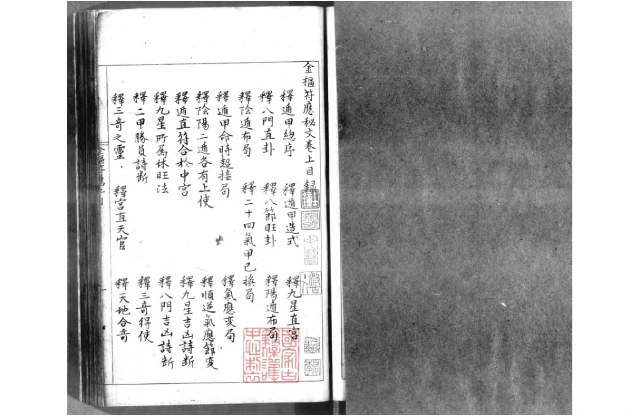 金樞符應秘文卷上目錄
釋遁甲總序 釋遁甲造式 釋九星直宮
釋八門直卦 釋八節旺卦 釋陽遁布局
釋陰遁布局 釋二十四氣甲己換局
釋遁甲命時超接局 釋氣應交局
釋陰陽二遁各有上使 釋順逆氣應節交
釋遁直符合於中宮 釋九星吉凶詩斷
釋九星所屬休旺法 釋八門吉凶詩斷
釋二甲勝負詩斷 釋三奇得使
釋三奇之靈 釋宮直天官 釋天地合奇